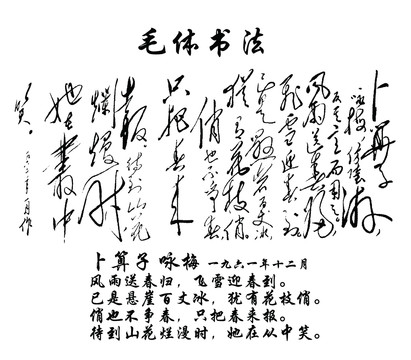 毛体书法
卜算子
风雨送春归
飞雪迎春到
已是悬崖百丈冰
犹有花枝俏。
俏也不争春
只把春来
报。待到山花
烂漫时
她在丛中
笑。
卜算子 咏梅 一九六一年十二月
风雨送春归，飞雪迎春到。
已是悬崖百丈冰，犹有花枝俏。
俏也不争春，只把春来报。
待到山花烂漫时，她在从中笑。